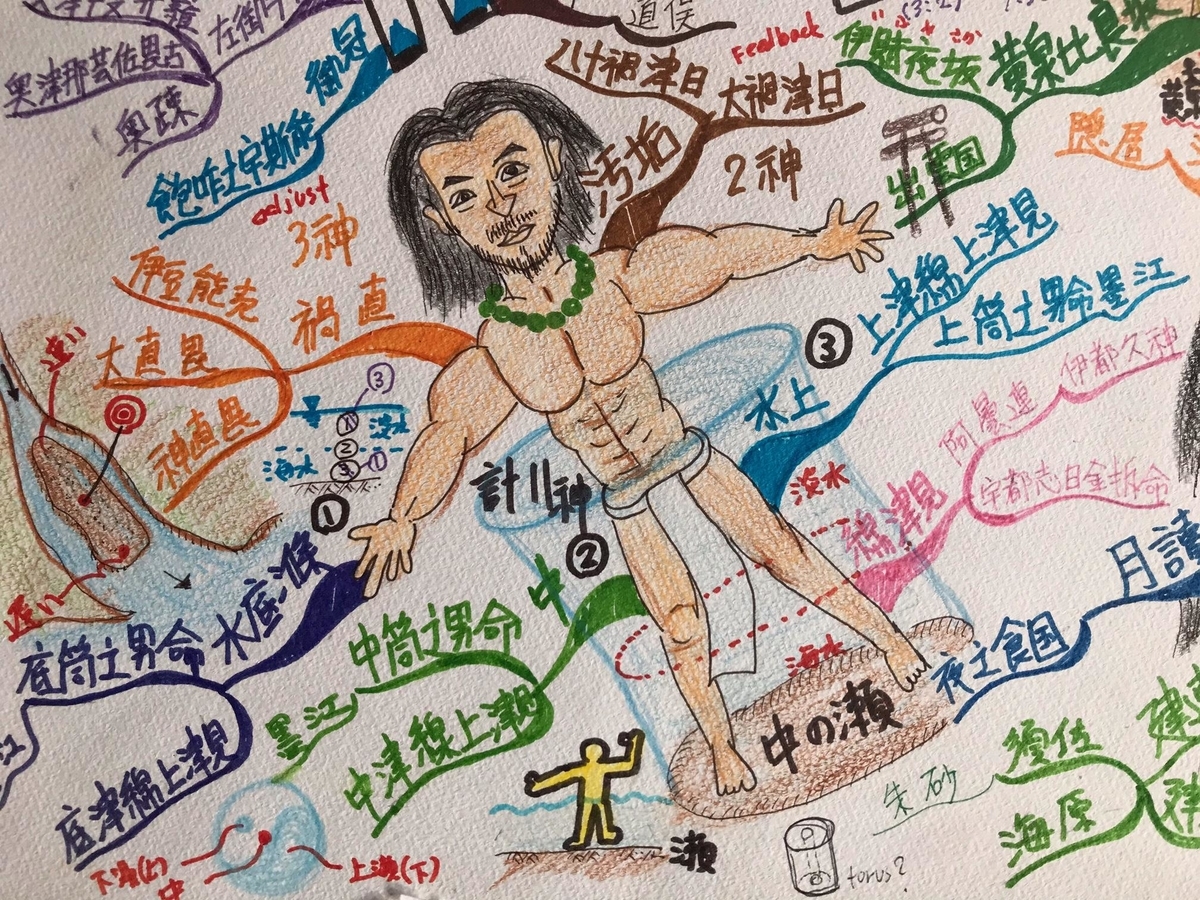 左御
奥津那芸佐毘古
奥疎
御冠
飽咋之宇斯能
adjust
3神
伊豆能売
大直毘
神直毘
禍直
道俣
八十禍津日
大禍津日
汚垢
2神
Feedback
伊賦夜坂
黄泉比良坂
出雲国
隠居
速い
遅い
③
①
②
③
①
淡水
海水
計11神
①
②
③
水上
上津綿上津見
上筒之男命
墨江
淡水
海水
綿津見
阿曇連
伊都久神
宇都志日金拆命
月讀
夜之食国
水底滌
底筒之男命
底津綿上津見
江
中
中筒之男命
墨江
中津綿上津見
中の瀬
瀬
朱砂
須佐
海原
建
torus?
中
上瀬(下)